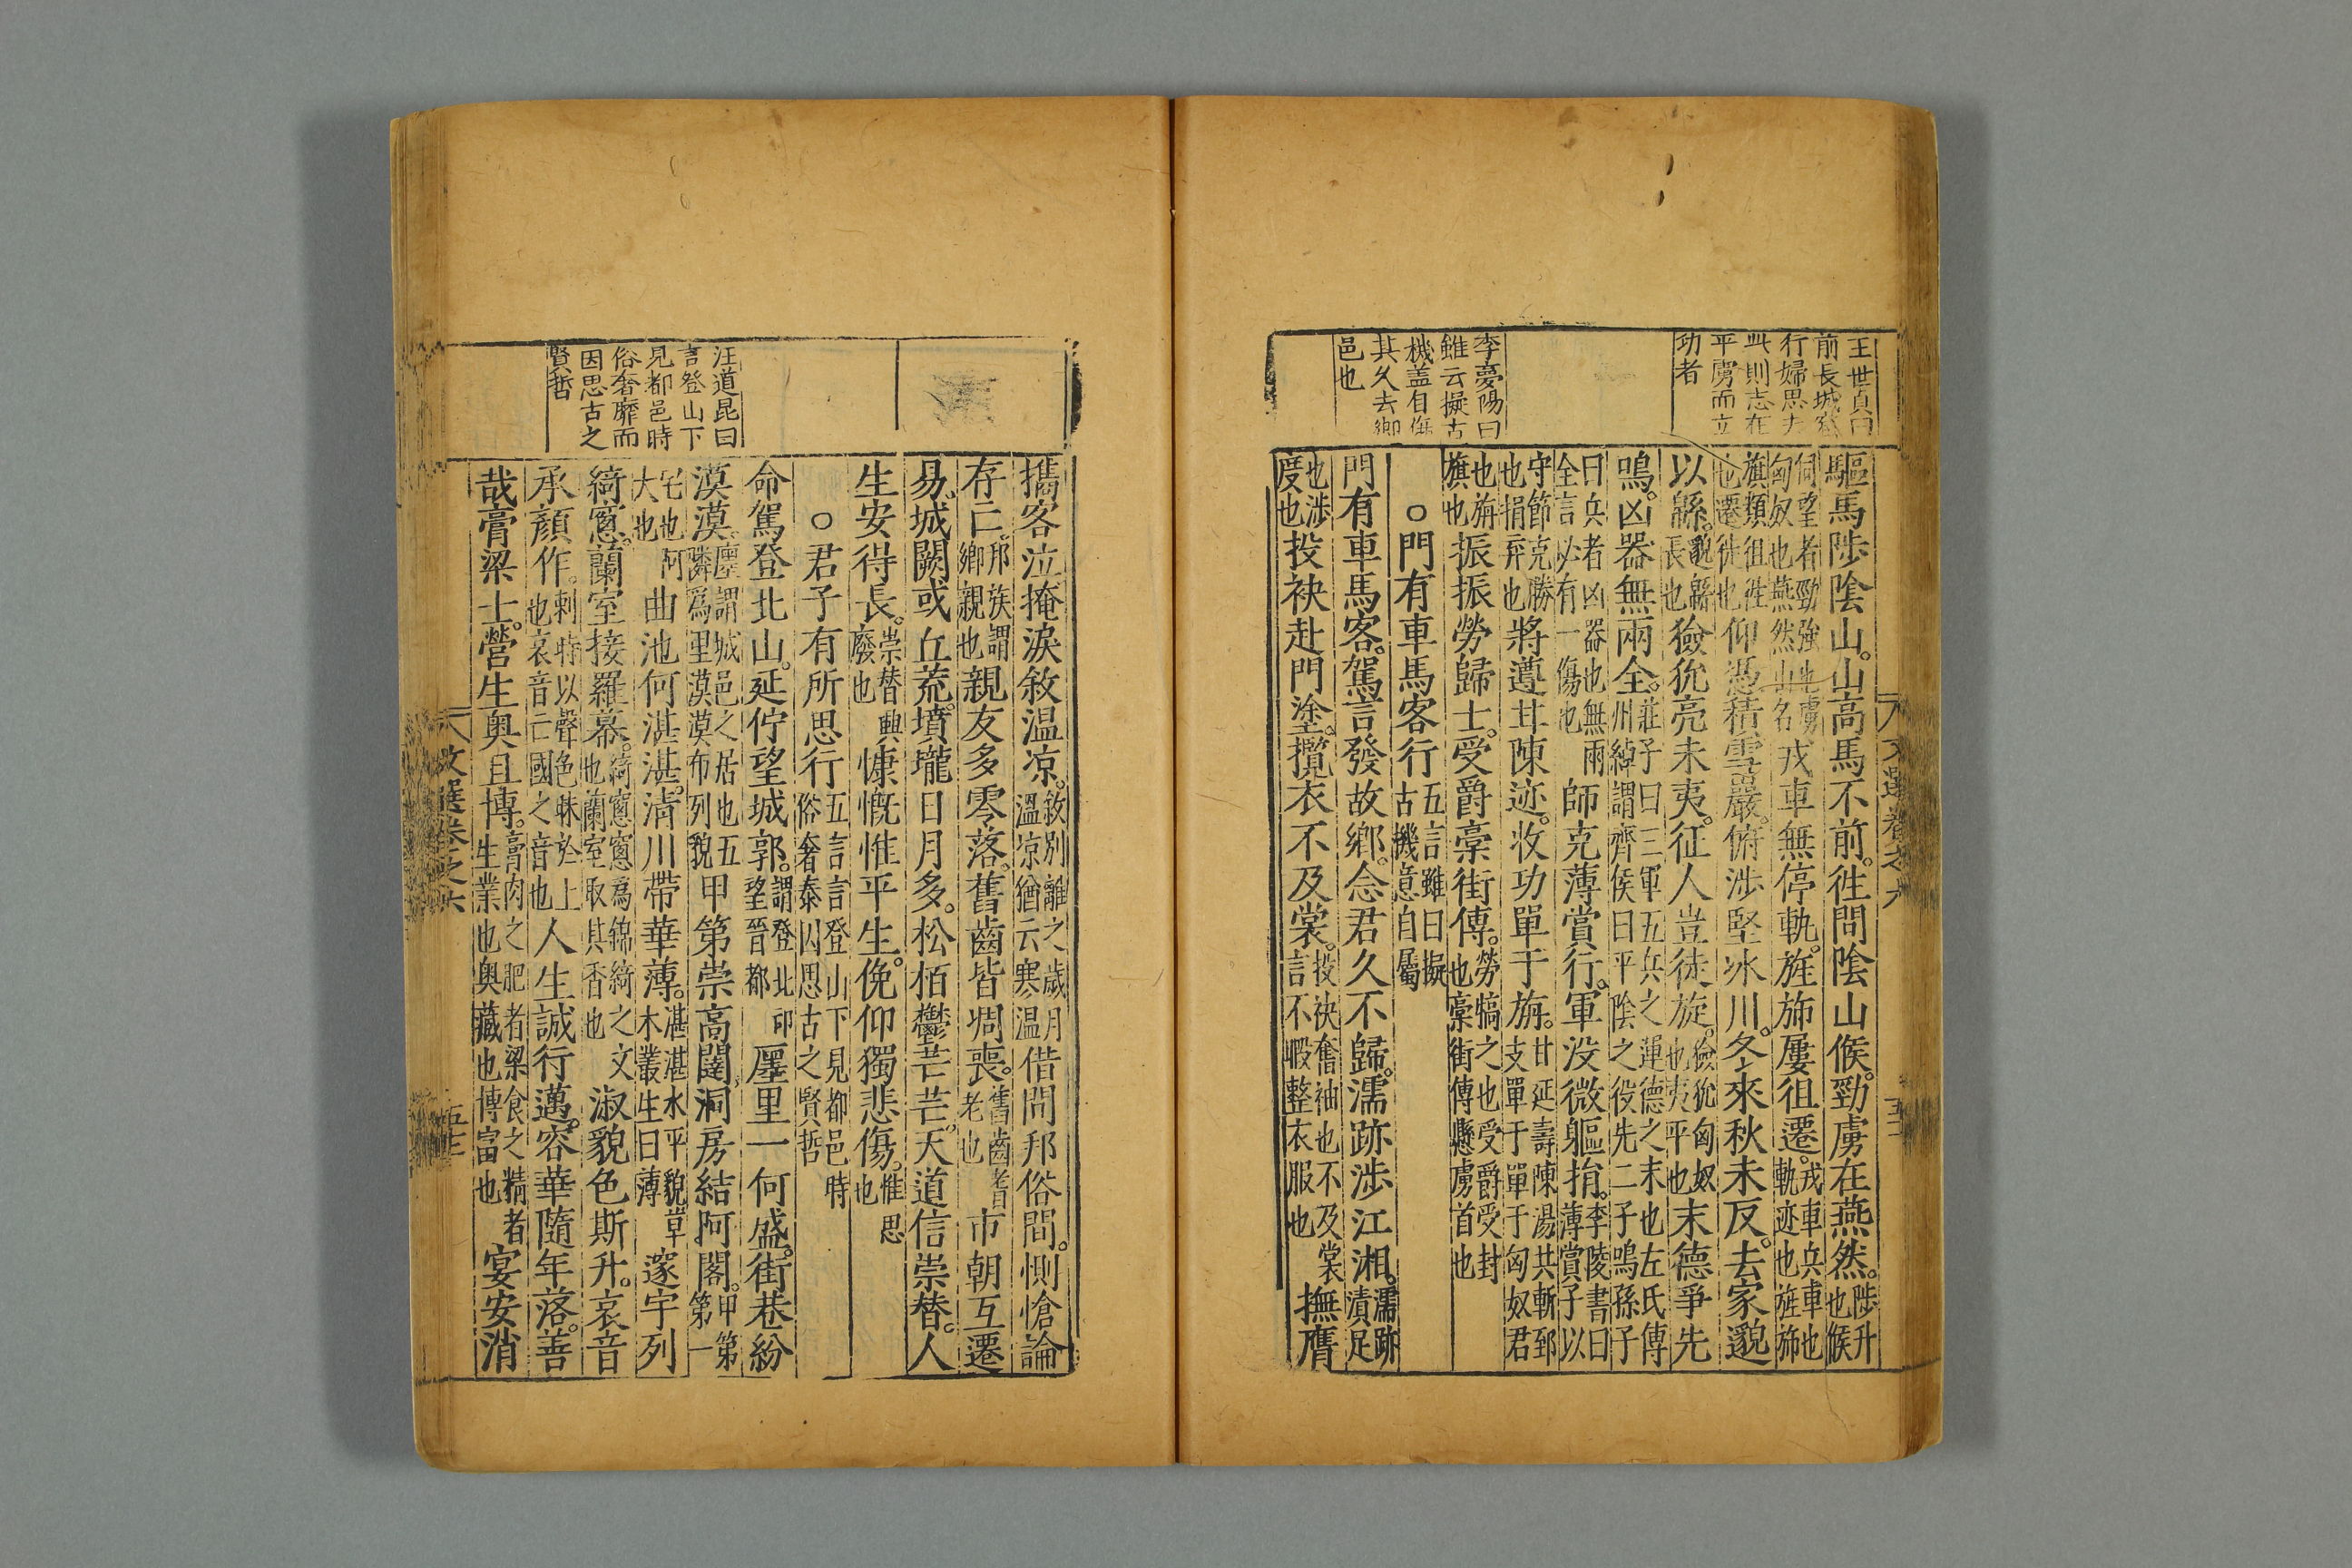 王世貞曰
前長城窟
行婦思夫
此則志在
平虜而立
功者
李夢陽曰
雖云擬古
機盖自傷
其久去鄉
邑也
驅馬陟陰山。山高馬不前。徃問陰山候。勁虜在燕然。陟升也候
伺望者勁強也虜匈奴也燕然山名戎車無停軌。旌斾屢徂遷。戎車兵車也軌迹也旌斾
旗類徂徃也遷徙也仰憑積雪巖。俯涉堅冰川。冬來秋未反。去家邈
以緜。邈緜長也獫狁亮未夷。征人豈徒旋。獫狁匈奴也夷平也末德爭先
鳴。凶器無兩全。莊子曰三軍五兵之運德之末也左氏傳州綽謂齊侯曰平陰之役先二子鳴孫子
曰兵者凶器也無兩全言必有一傷也師克薄賞行。軍没微軀捐。李陵書曰薄賞子以
守節克勝也捐弃也將遵甘陳迹。收功單于旃。甘延壽陳湯共斬郅支單于單于匈奴君
也旃旗也振振勞歸士。受爵稾街傳。勞犒之也受爵受封也稾街傳懸虜首也
○門有車馬客行五言雖曰擬古機意自屬
門有車馬客。駕言發故鄉。念君久不歸。濡跡涉江湘。濡跡漬足
也涉度也投袂赴門塗。攬衣不及裳。投袂奮袖也不及裳言不暇整衣服也撫膺
攜客泣掩淚敘温凉。敘別離之歲月温凉猶云寒温借問邦俗間。惻愴論
存亡。邦族謂鄉親也親友多零落。舊齒皆凋喪。舊齒耆老也市朝互遷
易。城闕或丘荒。墳壠日月多。松栢鬱芒芒。天道信崇替。人
生安得長。崇替興廢也慷慨惟平生。俛仰獨悲傷。惟思也
○君子有所思行五言言登山下見都邑時俗奢泰因思古之賢哲
命駕登北山。延佇望城郭。謂登北邙望晉都㕓里一何盛。街巷紛
漠漠。㕓謂城邑之居也五隣爲里漠漠布列貌甲第崇高闥。洞房結阿閣。甲第第一
宅也阿大也曲池何湛湛。清川帶華薄。湛湛水平貌草木叢生曰薄邃宇列
綺窻。蘭室接羅幕。綺窻窻爲錦綺之文也蘭室取其香也淑貌色斯升。哀音
承顏作。刺時以聲色昧於上也哀音亡國之音也人生誠行邁。容華隨年落。善
哉膏梁士。營生奥且博。膏肉之肥者梁食之精者生業也奥藏也博富也宴安消
汪道昆曰
言登山下
見都邑時
俗奢靡而
因思古之
賢哲
文選卷之六